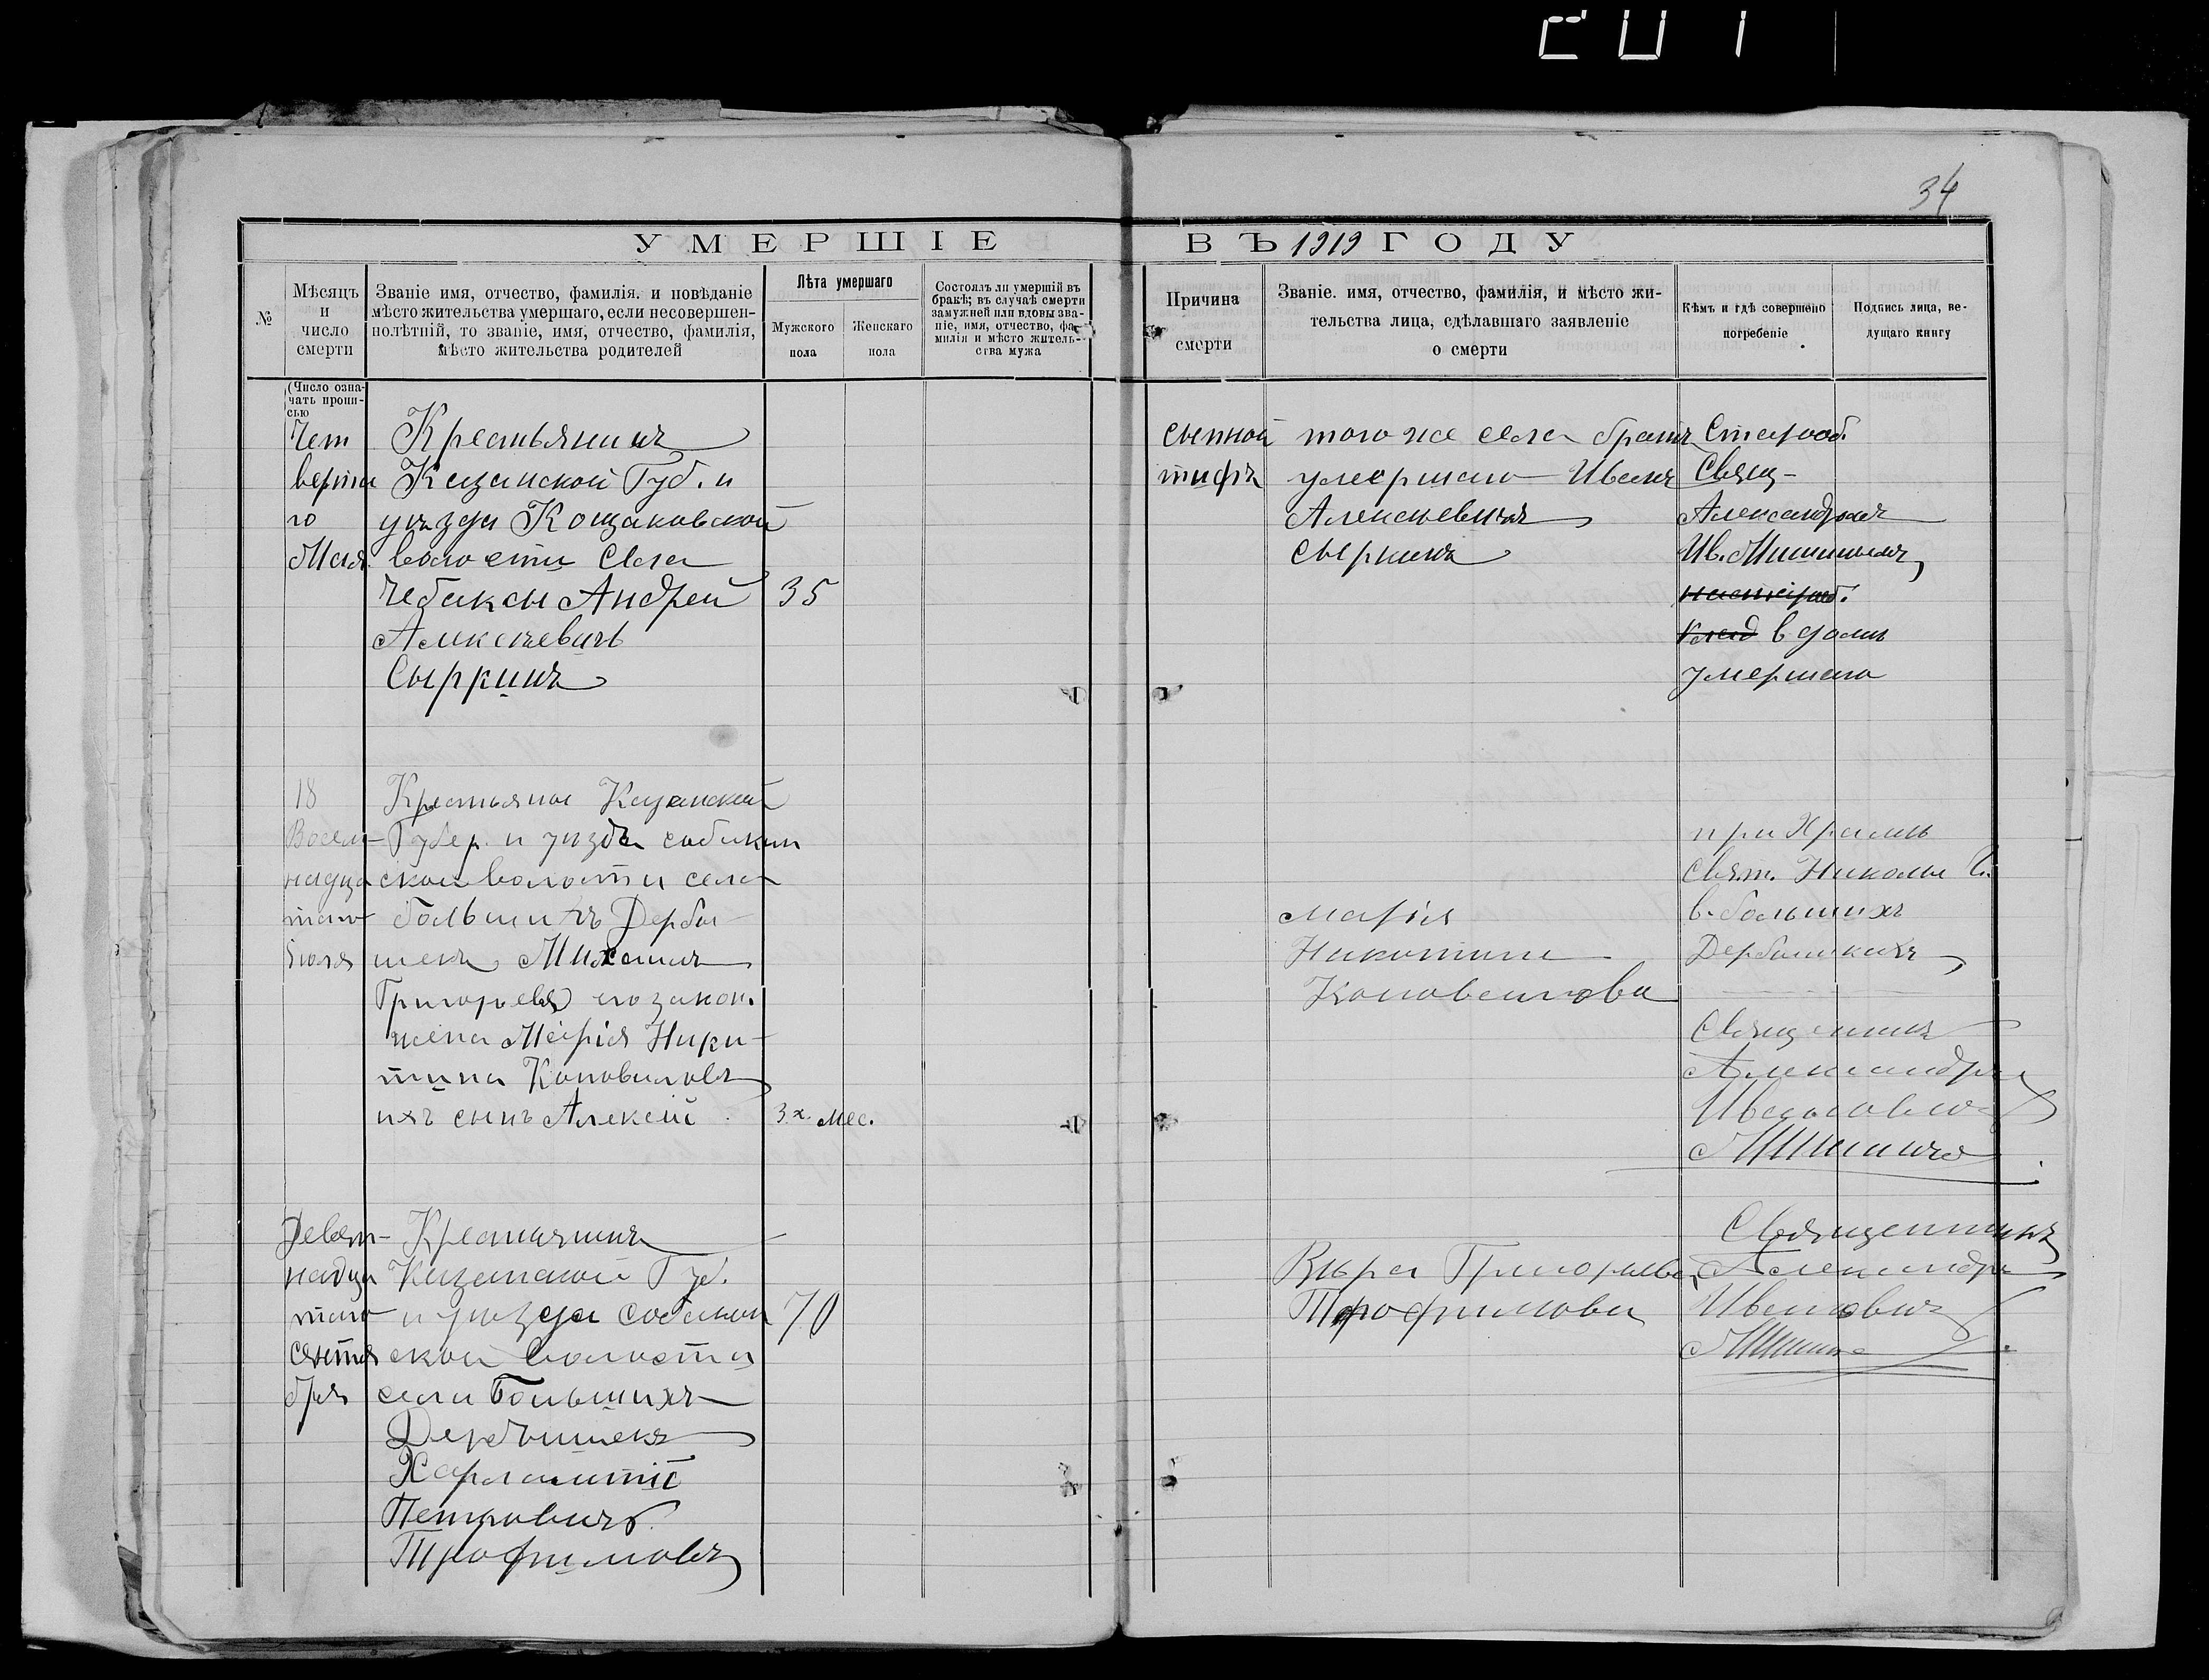 34
УМЕРШІЕ ВЪ 1919 ГОДУ
№
Мѣсяцъ
и
число
смерти
Званіе имя, отчество, фамилія. и повѣданіе
мѣсто жительства умершаго, если несовершен-
нолѣтній, то званіе, имя, отчество, фамилія,
мѣсто жительства родителей
Лѣта умершаго
Мужского
пола
Женскаго
пола
Состоялъ ли умершій въ
бракѣ; въ случаѣ смерти
замужней или вдовы зва-
ніе, имя, отчество, фа-
милія и мѣсто житель-
ства мужа
Причина
смерти
Званіе. имя, отчество, фамилія, и мѣсто жи-
тельства лица, сдѣлавшаго заявленіе
о смерти
Кѣмъ и гдѣ совершено
погребеніе
Подпись лица, ве-
дущаго книгу
(Число озна-
чать пропи-
сью
Чет
верта
го
Мая.
Крестьянинъ
Казанской Губ. и
уѣзда Кощаковской
волости села
Чебаксы Андрей
Алексѣевичъ
Сыркинъ
35
сыпной
тифъ
того же села братъ
умершаго Иванъ
Алексѣевичъ
Сыркинъ
Старооб.
Свящ-
Александромъ
Ив. Мишинымъ,
клад в домѣ
умершаго
18
Восем-
надца
таго
іюля
Крестьяне Казанской
Губер. и уѣзда собакин
ской волости села
большихъ Дербы-
шекъ Михаилъ
Григорьевъ его закон.
жена Марія Ники-
тина Коновалова
ихъ сынъ Алексій
3х. мес.
Марія
Никитина
Коновалова
при Храмѣ
Свят. Николы
в. большихъ
Дербышкахъ
Священникъ
Александръ
Ивановичъ
Мишинъ
Девят-
надца
таго
сентя
бря
Крестьянинъ
Казанской Губ.
и уѣзда собакин
ской волости
села Большихъ
Дербышекъ
Харлампій
Петровичъ
Трофимовъ
70
Вѣра Григорьева
Трофимова
Священникъ
Александръ
Ивановичъ
Мишинъ